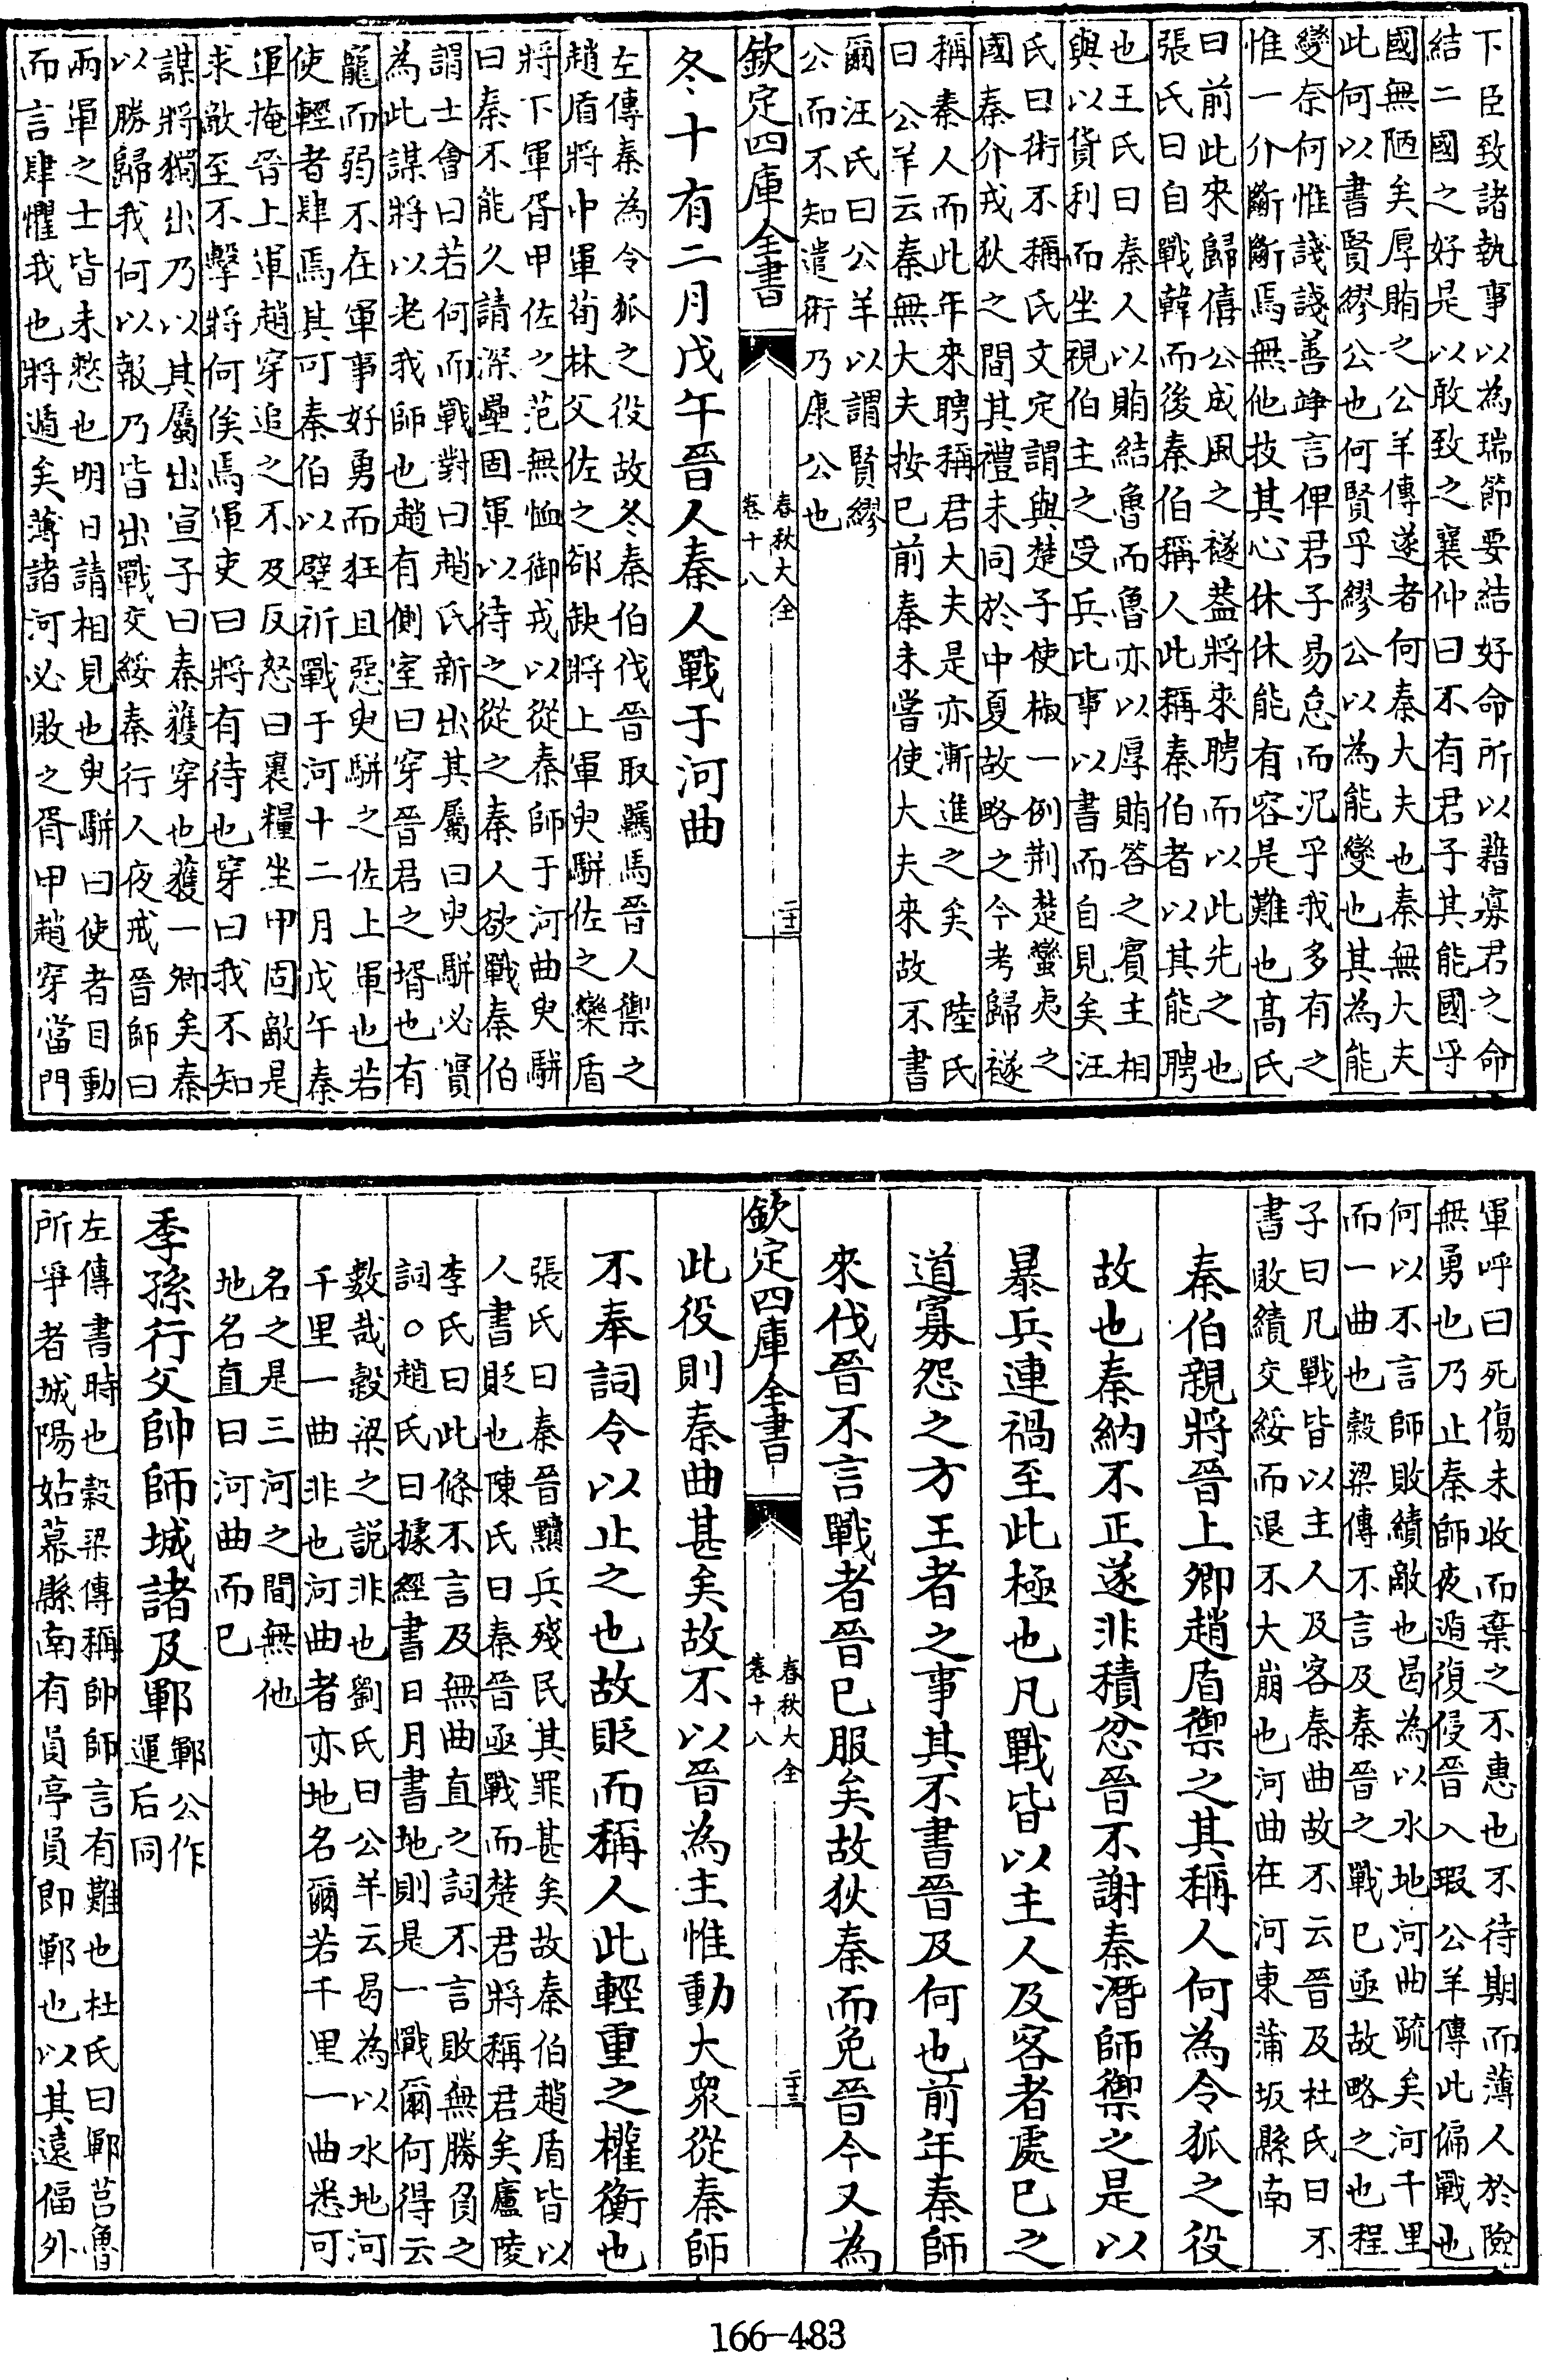 下臣致諸執事以為瑞節要結好命所以藉寡君之命
結二國之好是以敢致之襄仲曰不有君子其能國乎
國無陋矣厚賄之公羊傳遂者何秦大夫也秦無大夫
此何以書賢繆公也何賢乎繆公以為能變也其為能
變奈何惟諓諓善竫言俾君子易怠而况乎我多有之
惟一介斷斷焉無他技其心休休能有容是難也髙氏
曰前此來歸僖公成風之襚葢將來聘而以此先之也
張氏曰自戰韓而後秦伯稱人此稱秦伯者以其能聘
也王氏曰秦人以賄結魯而魯亦以厚賄答之賓主相
與以貨利而坐視伯主之受兵比事以書而自見矣汪
氏曰術不稱氏文定謂與楚子使椒一例荆楚蠻夷之
國秦介戎狄之間其禮未同於中夏故略之今考歸襚
稱秦人而此年來聘稱君大夫是亦漸進之矣 陸氏
曰公羊云秦無大夫按已前秦未嘗使大夫來故不書
爾汪氏曰公羊以謂賢繆
公而不知遣術乃康公也
欽定四庫全書
春秋大全
卷十八
二十二
冬十有二月戊午晉人秦人戰于河曲
左傳秦為令狐之役故冬秦伯伐晉取羈馬晉人禦之
趙盾將中軍荀林父佐之郤缺將上軍臾駢佐之欒盾
將下軍胥甲佐之范無恤御戎以從秦師于河曲臾駢
曰秦不能久請深壘固軍以待之從之秦人欲戰秦伯
謂士會曰若何而戰對曰趙氏新出其屬曰臾駢必實
為此謀將以老我師也趙有側室曰穿晉君之壻也有
寵而弱不在軍事好勇而狂且惡臾駢之佐上軍也若
使輕者肆焉其可秦伯以璧祈戰于河十二月戊午秦
軍掩晉上軍趙穿追之不及反怒曰裹糧坐甲固敵是
求敵至不擊將何俟焉軍吏曰將有待也穿曰我不知
謀將獨出乃以其屬出宣子曰秦獲穿也獲一卿矣秦
以勝歸我何以報乃皆出戰交綏秦行人夜戒晉師曰
兩軍之士皆未憖也明日請相見也臾駢曰使者目動
而言肆懼我也將遁矣薄諸河必敗之胥甲趙穿當門
軍呼曰死傷未收而棄之不惠也不待期而薄人於險
無勇也乃止秦師夜遁復侵晉入瑕公羊傳此偏戰也
何以不言師敗績敵也曷為以水地河曲疏矣河千里
而一曲也穀梁傳不言及秦晉之戰已亟故略之也程
子曰凡戰皆以主人及客秦曲故不云晉及杜氏曰不
書敗績交綏而退不大崩也河曲在河東蒲坂縣南
秦伯親將晉上卿趙盾禦之其稱人何為令狐之役
故也秦納不正遂非積忿晉不謝秦潛師禦之是以
暴兵連禍至此極也凡戰皆以主人及客者處已之
道寡怨之方王者之事其不書晉及何也前年秦師
來伐晉不言戰者晉已服矣故狄秦而免晉今又為
欽定四庫全書
春秋大全
卷十八
二十三
此役則秦曲甚矣故不以晉為主惟動大衆從秦師
不奉詞令以止之也故貶而稱人此輕重之權衡也
張氏曰秦晉黷兵殘民其罪甚矣故秦伯趙盾皆以
人書貶也陳氏曰秦晉亟戰而楚君將稱君矣廬陵
李氏曰此條不言及無曲直之詞不言敗無勝負之
詞○趙氏曰據經書日月書地則是一戰爾何得云
數哉穀梁之説非也劉氏曰公羊云曷為以水地河
千里一曲非也河曲者亦地名爾若千里一曲悉可
名之是三河之間無他
地名直曰河曲而已
季孫行父帥師城諸及鄆鄆公作
運后同
左傳書時也穀梁傳稱帥師言有難也杜氏曰鄆莒魯
所爭者城陽姑幕縣南有員亭員即鄆也以其遠偪外
166-483